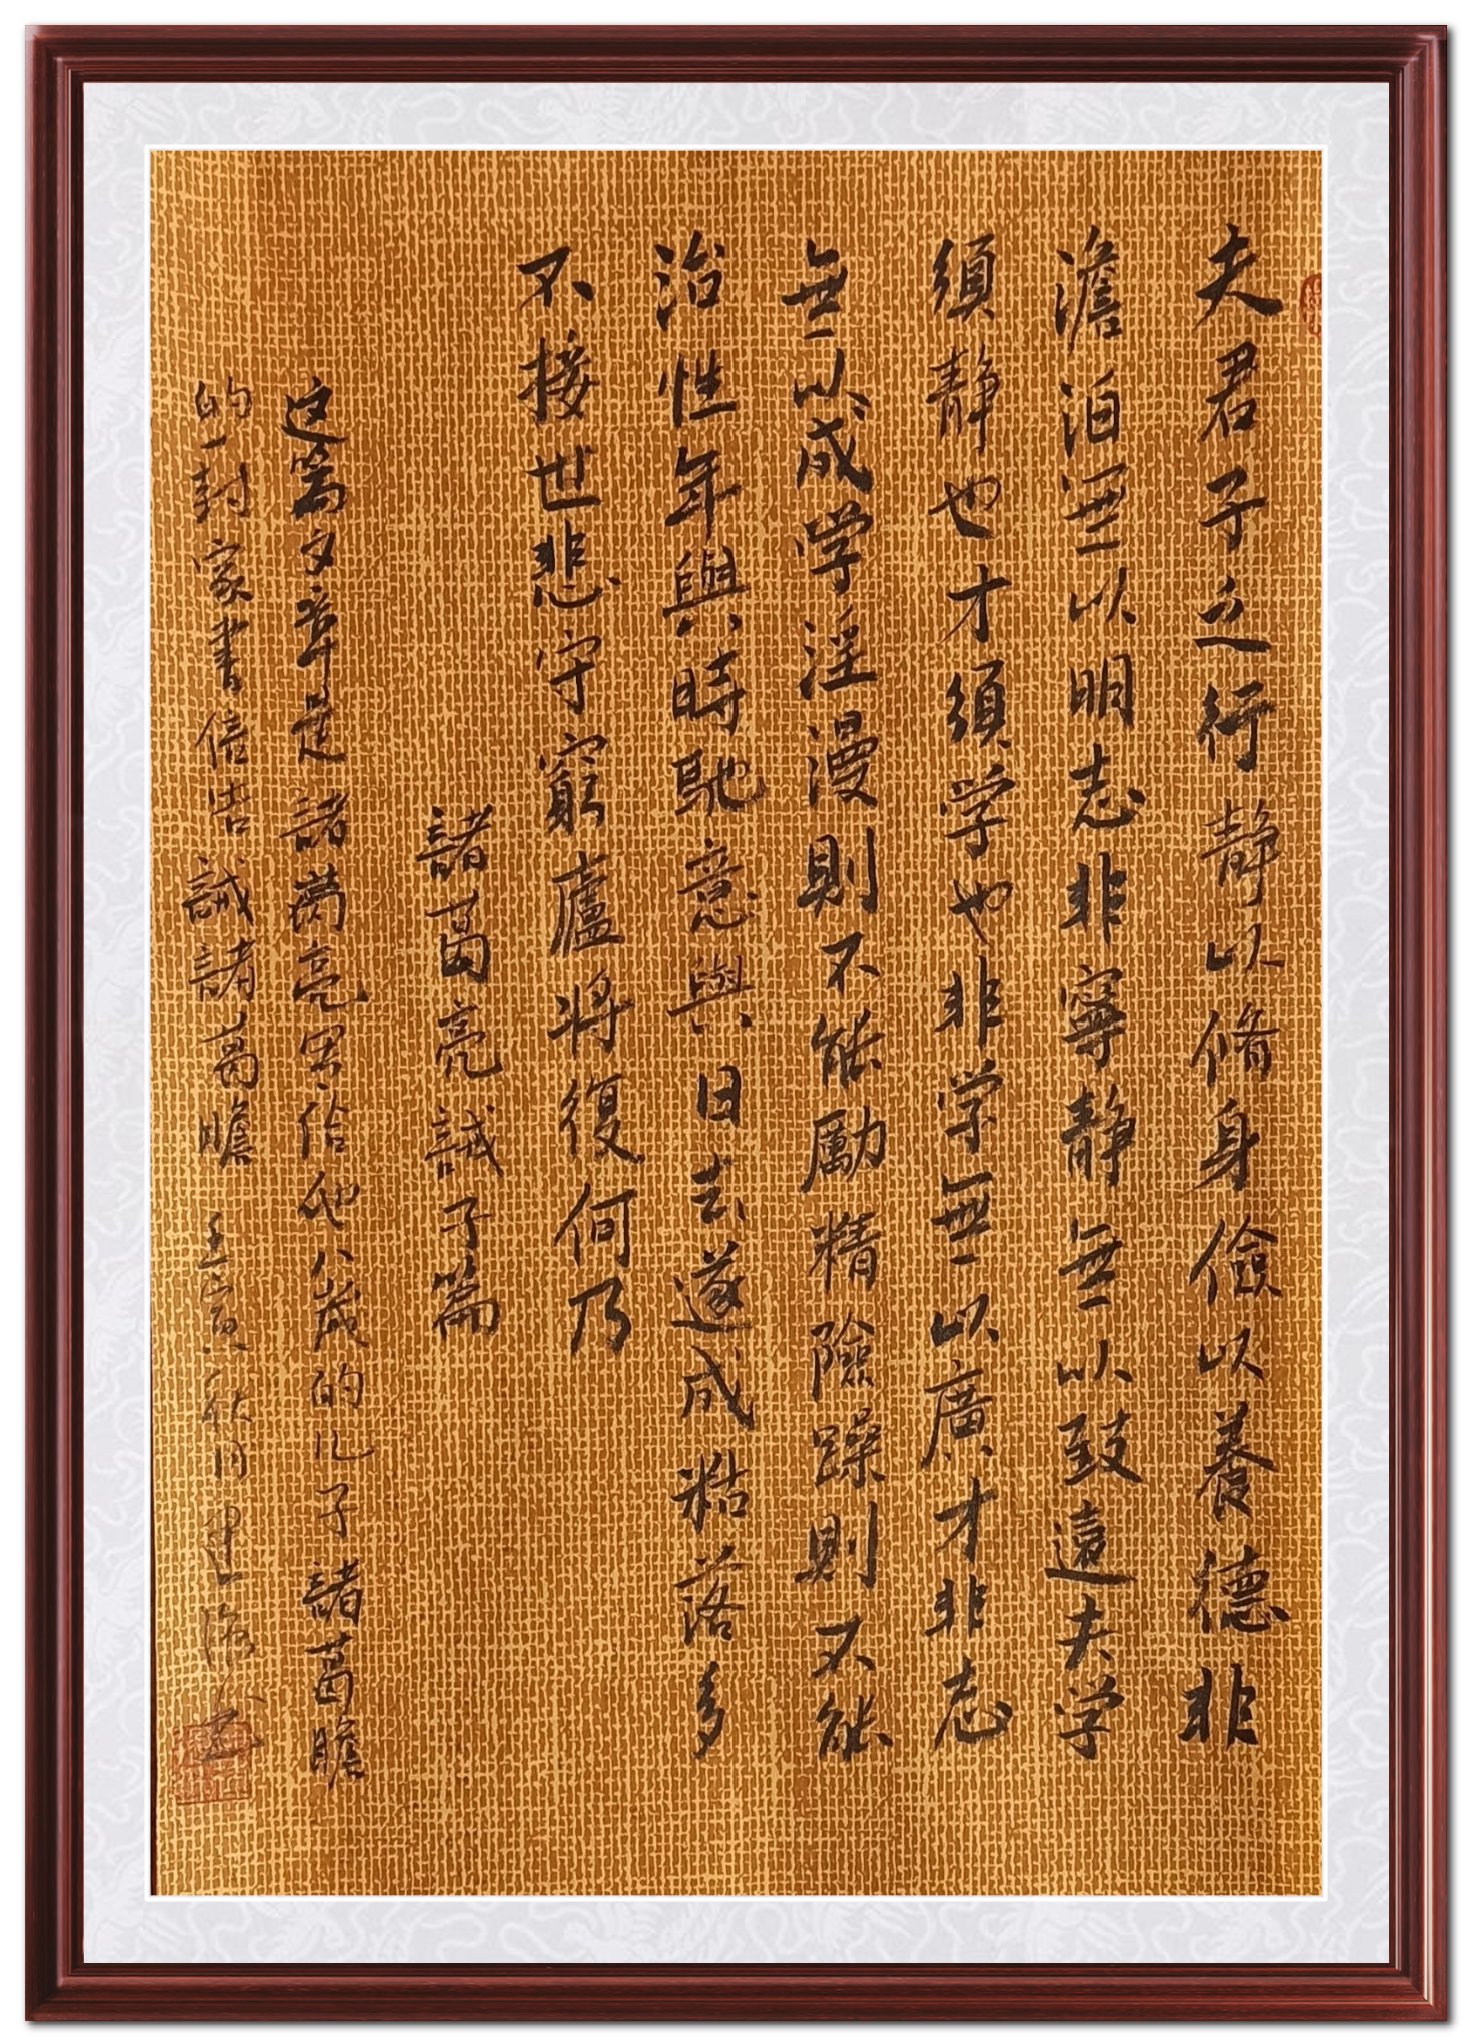 夫君子之行静以脩身儉以養德非
澹泊無以明志非寧静無以致遠夫学
須静也才須学也非学無以廣才非志
無以成学淫漫則不能勵精險躁則不能
治性年與時馳意與日去遂成粘落多
不接世悲守窮廬将復何乃
諸葛亮誡子篇
这篇文章是諸葛亮写给他八歲的儿子諸葛瞻
的一封家書信告誡諸葛瞻 壬寅秋月建